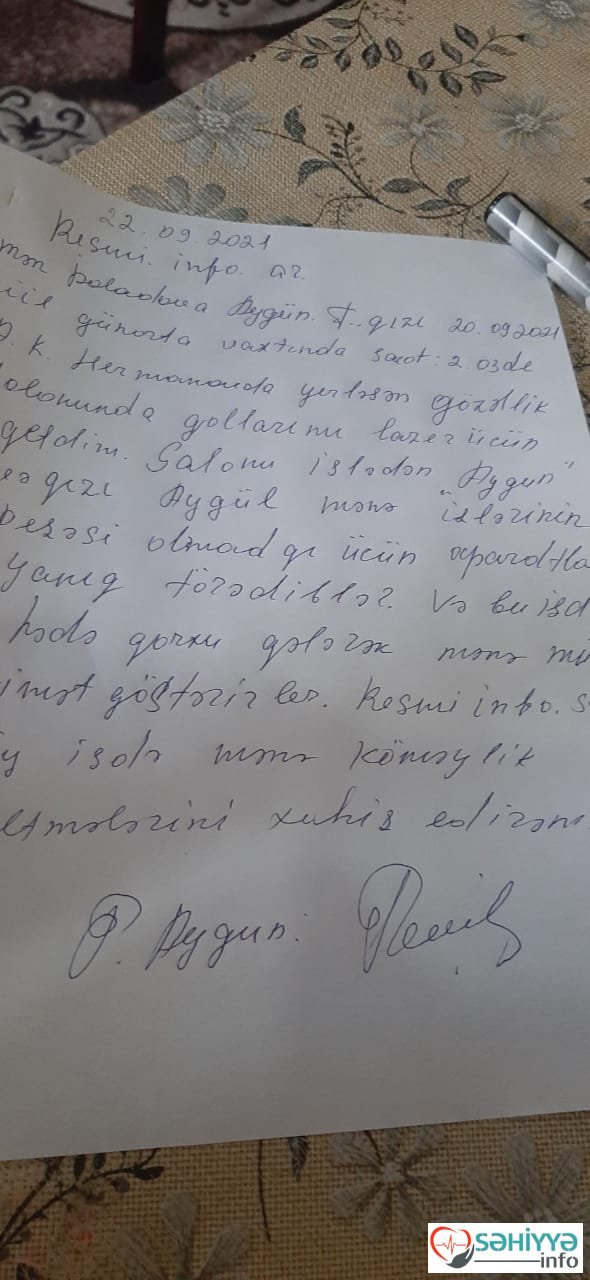 22.09.2021
Resmi.info.az.
mən Poladova Aygün. F. qızı 20.092021
günorta vaxtında saat: 2.03də
K. Hermananda yerləşən gözəllik
olonunda qollarımı lazer üçün
gəldim. Salonu işlədən "Aygun"
qızı Aygül mənə işlərinin
peşəsi olmadığı üçün aparatla
yanıq törədiblər. Və bu işd
hədə qorxu gələrək mənə mü
göstərirlər. Resmi info. s
işdə mənə köməylik
etmələrini xahiş edirəm
P. Aygun.
səhiyyə
info